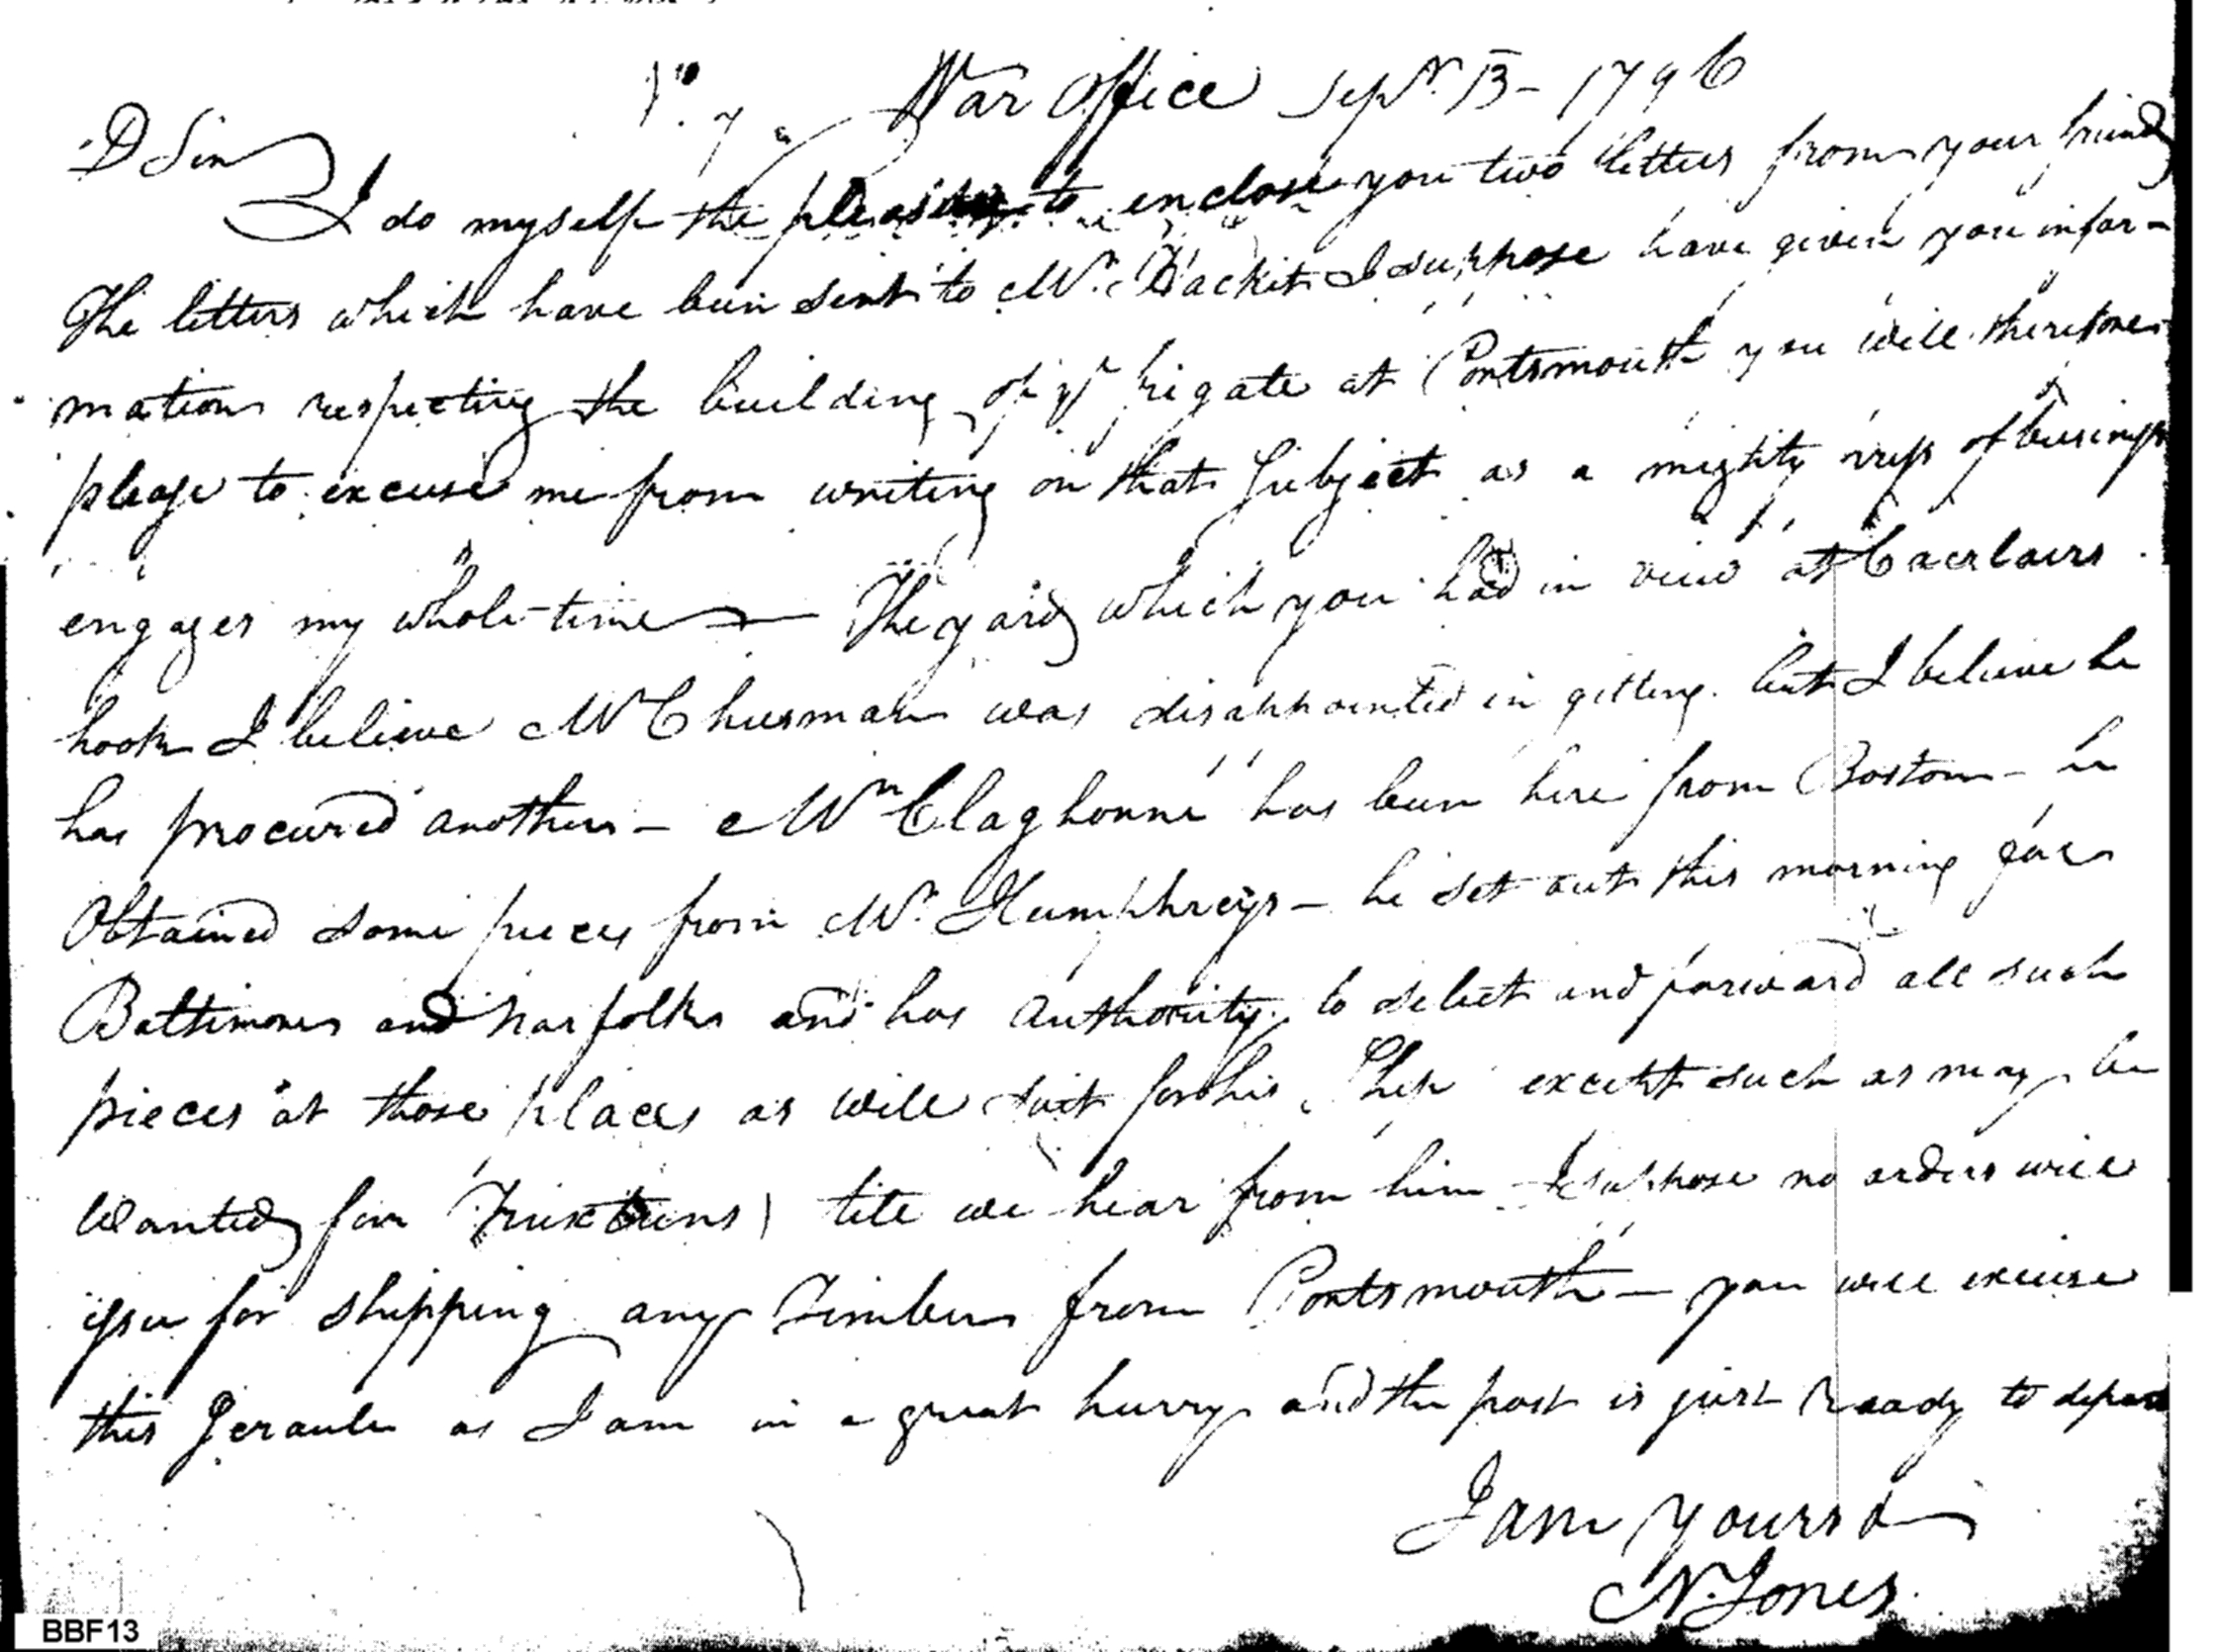 War Office Sepr. 13 - 1796
D Sir
I do myself the pleasure to enclose you two letters from your friend
The letters which have been sent to Mr. Hackit I suppose have given you infor-
mation respecting the building of ye frigate at Portsmouth you will therefore
please to excuse me from writing on that Subject as a mighty press of business
engages my whole time — The yard which you had in view at
hook I believe Mr was disappointed in getting. but I believe he
has procured another - Mr Claghorne has been here from Boston - he
Obtained some pieces from Mr. Humphreys - he set out this morning for
Baltimore and Norfolk and has Authority to select and forward all such
pieces at those places as will suit for his Ship except such as may be
Wanted for Truxtuns) till we hear from him I suppose no orders will
issu for shipping any Timber from Portsmouth - you will excuse
this Scrawle as I am in a great hurry and the post is just Ready to depart
I am Yours &
N. Jones
BBF13